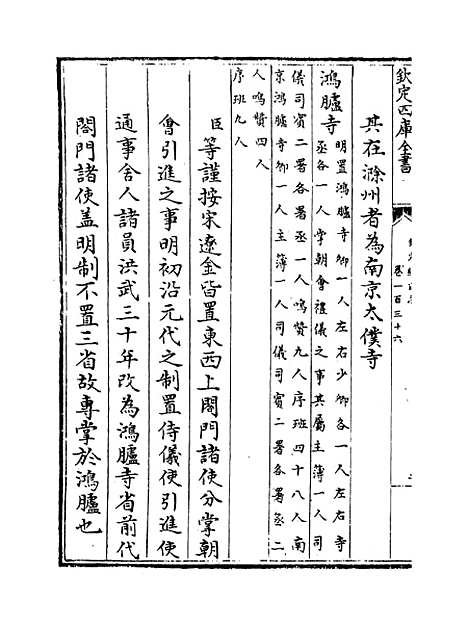 欽定四庫全書
卷一百三十六
其在滁州者為南京太僕寺
鴻臚寺
明置鴻臚寺卿一人左右少卿各一人左右寺
丞各一人掌朝會禮儀之事其屬主簿一人司
儀司賓二署各署丞一人鳴贊九人序班四十八人南
京鴻臚寺卿一人主簿一人司儀司賓二署各署丞二
人鳴贊四人
序班九人
臣等謹按宋遼金皆置東西上閤門諸使分掌朝
會引進之事明初沿元代之制置侍儀使引進使
通事舍人諸員洪武三十年改為鴻臚寺省前代
閤門諸使盖明制不置三省故專掌於鴻臚也